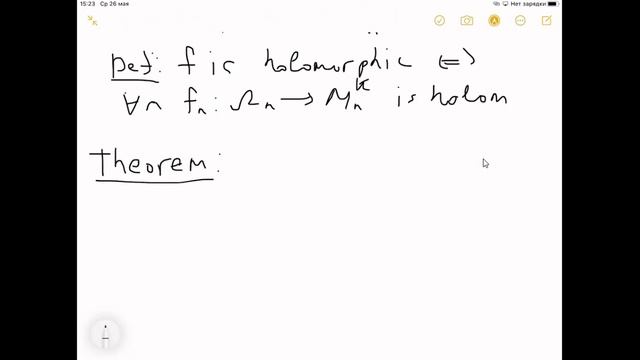 15:23 Ср 26 мая
Нет зарядки
Def: f is holomorphic ⇔
∀n fₙ: Ωₙ → Mₙᵏ is holom
Theorem: